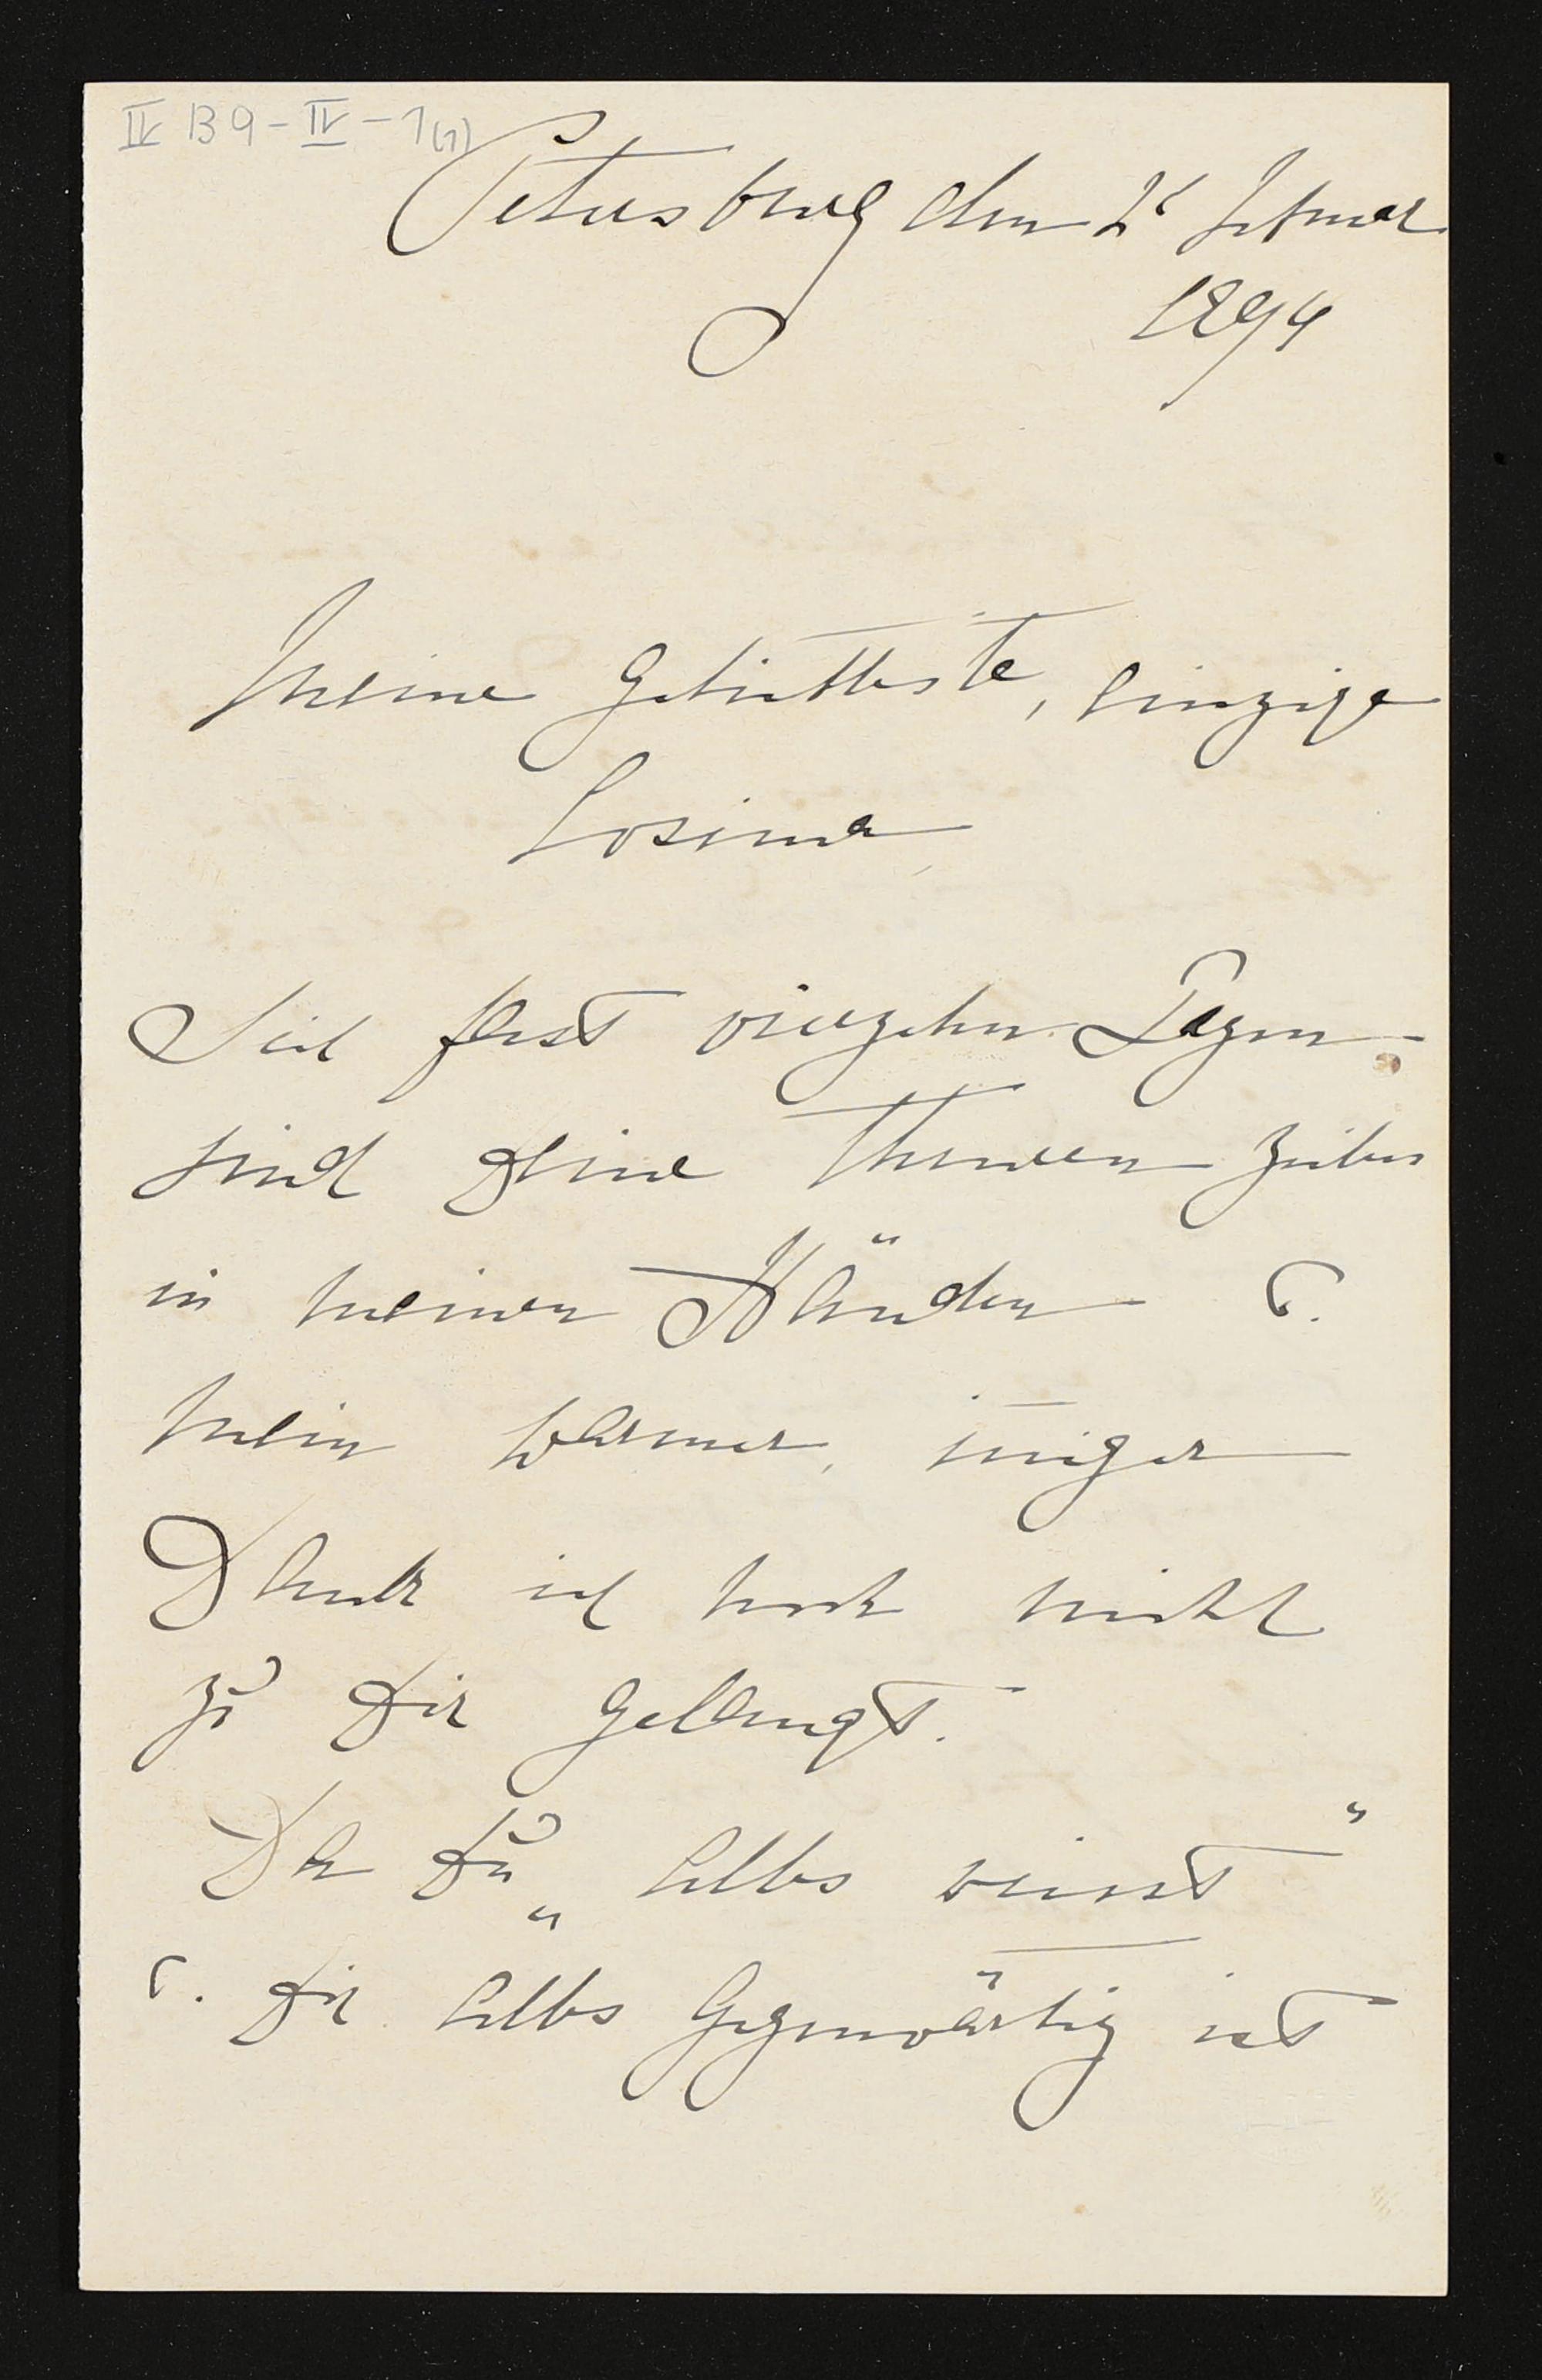 IV B 9 - IV - 1(1)
Petersburg den 2t Februar
1894
Meine Geliebteste, einzige
Cosima
Seit fast vierzehn Tagen
sind Deine theuren Zeilen
in meinen Händen u.
mein warmer, inniger
Dank ist noch nicht
zu Dir gelangt.
Da Du „Alles weisst“
u. Dir Alles gegenwärtig ist